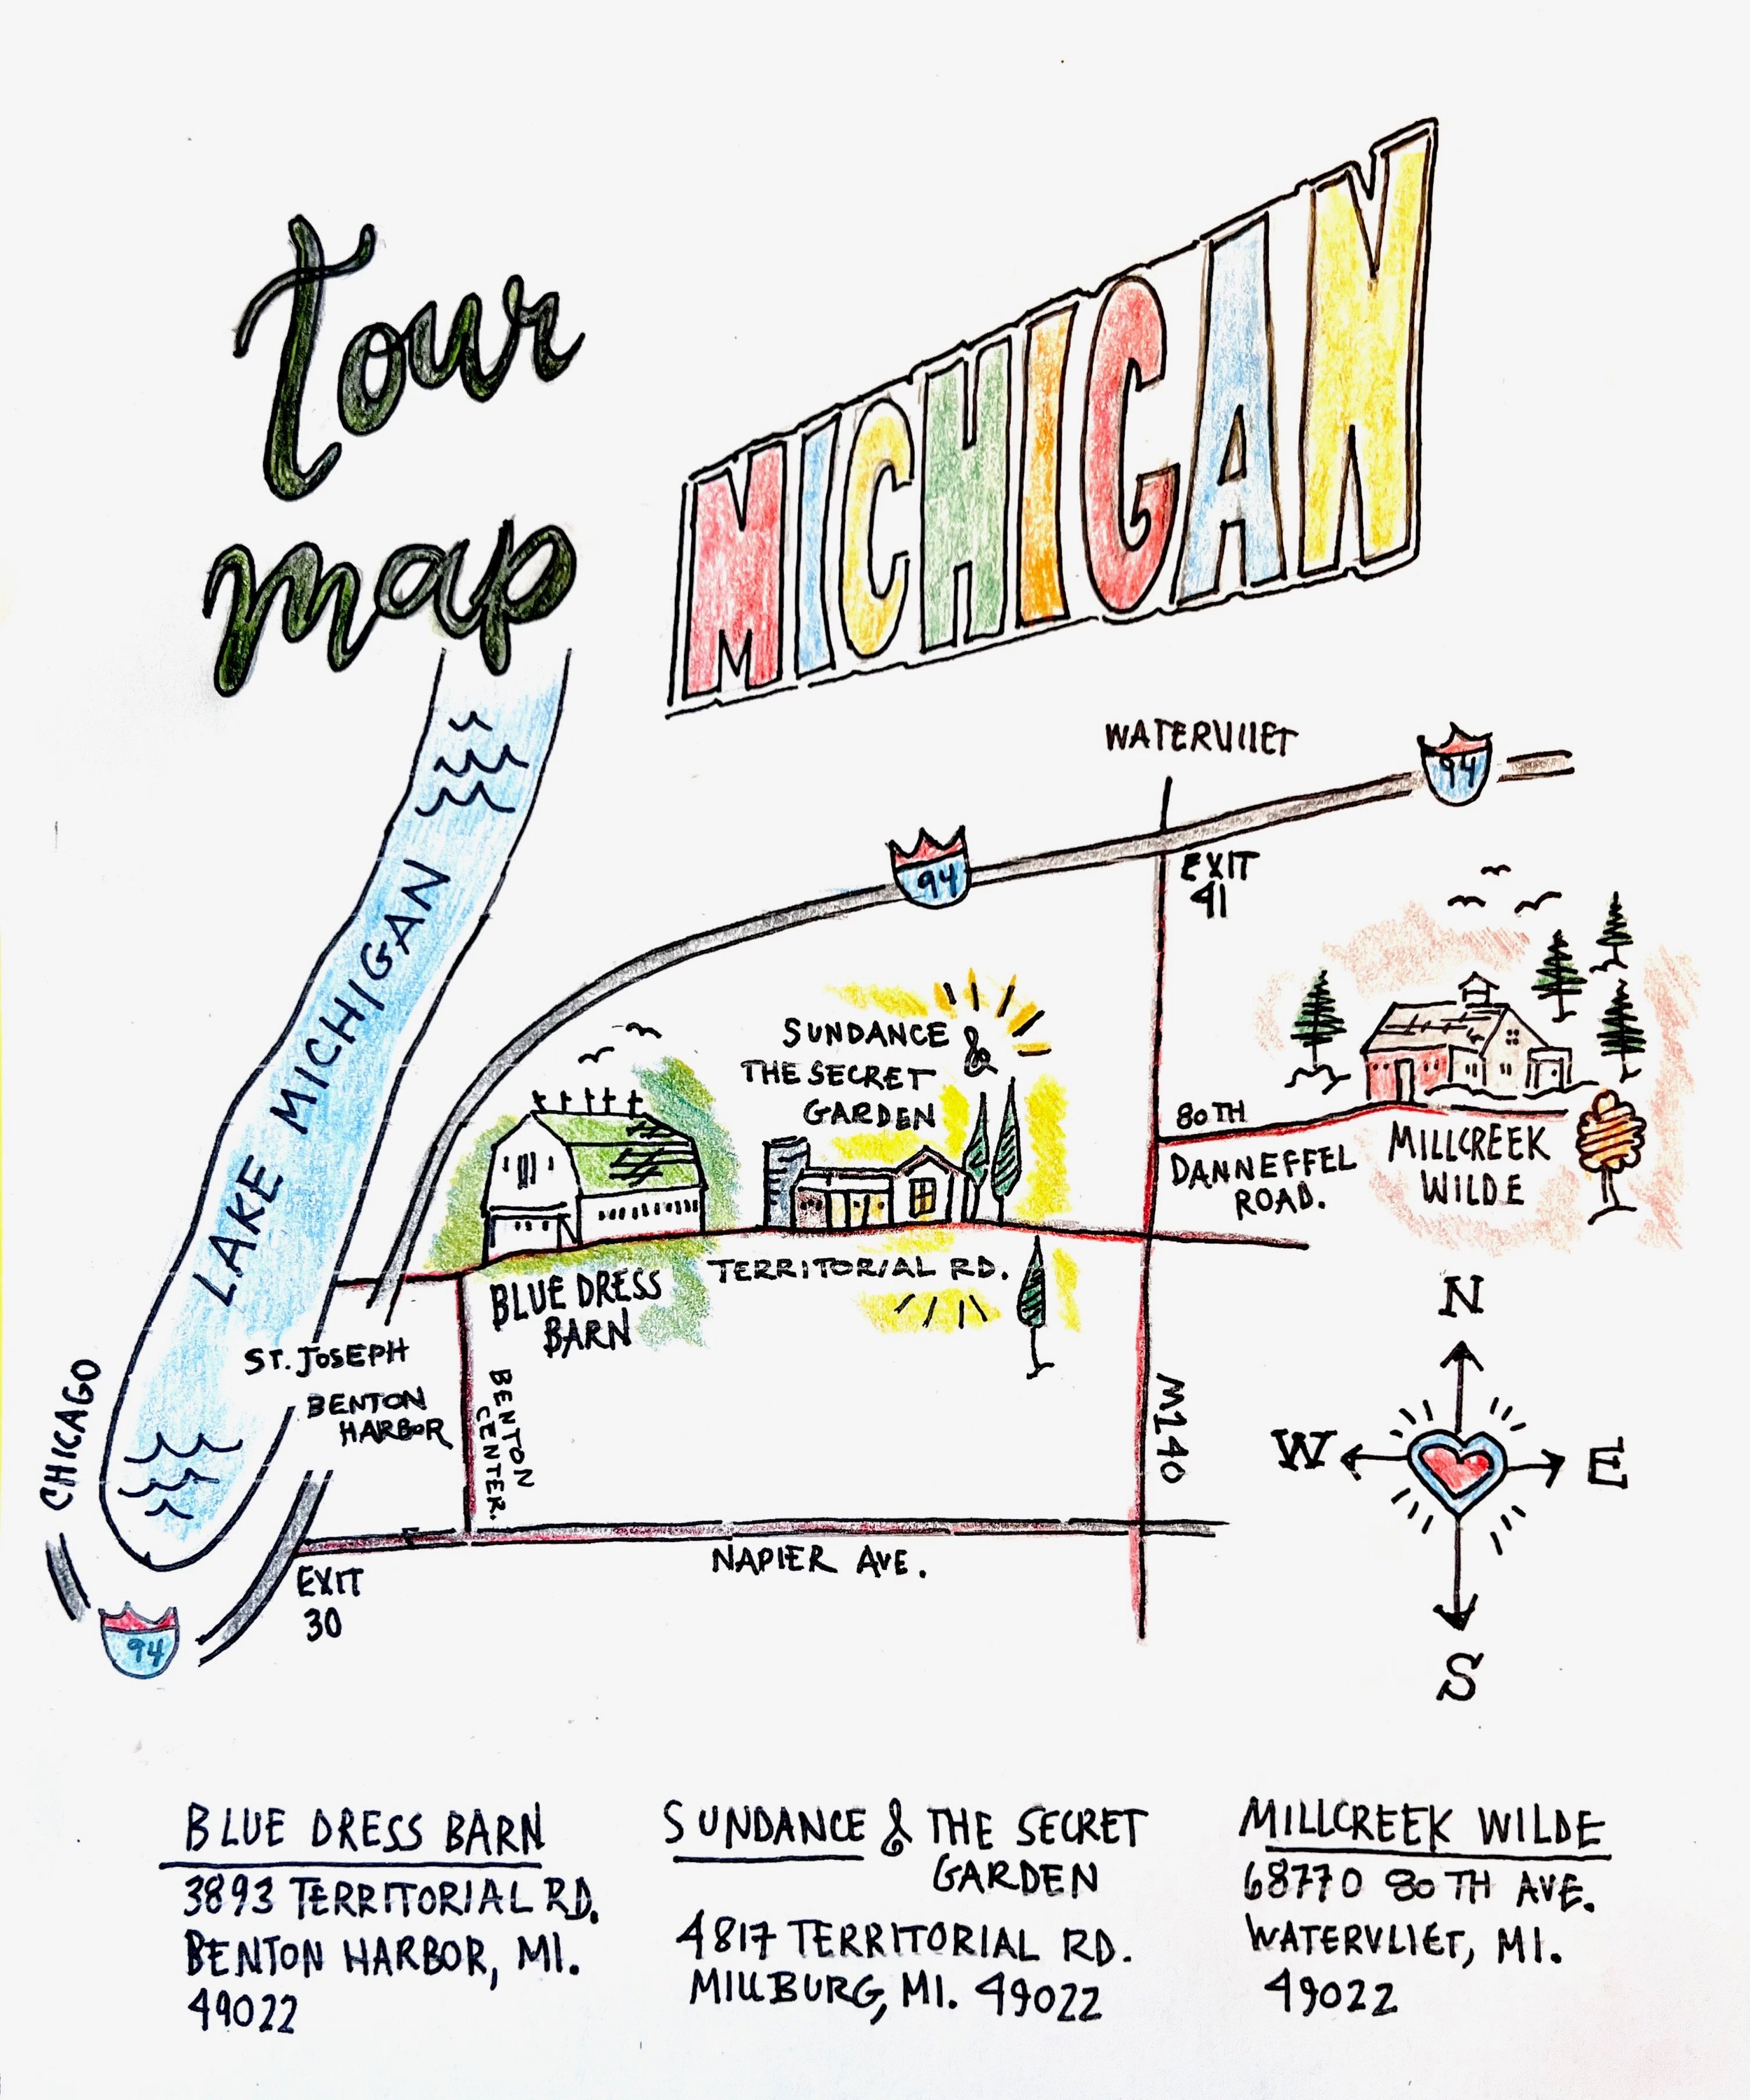 tour
map
MICHIGAN
WATERVLIET
94
94
EXIT
41
LAKE MICHIGAN
SUNDANCE &
THE SECRET
GARDEN
80TH
DANNEFFEL
ROAD.
MILLCREEK
WILDE
TERRITORIAL RD.
BLUE DRESS
BARN
ST. JOSEPH
BENTON
HARBOR
BENTON
CENTER.
CHICAGO
M140
N
W
E
S
NAPIER AVE.
EXIT
30
94
BLUE DRESS BARN
3893 TERRITORIAL RD.
BENTON HARBOR, MI.
49022
SUNDANCE & THE SECRET
GARDEN
4817 TERRITORIAL RD.
MILLBURG, MI. 49022
MILLCREEK WILDE
68770 80TH AVE.
WATERVLIET, MI.
49022